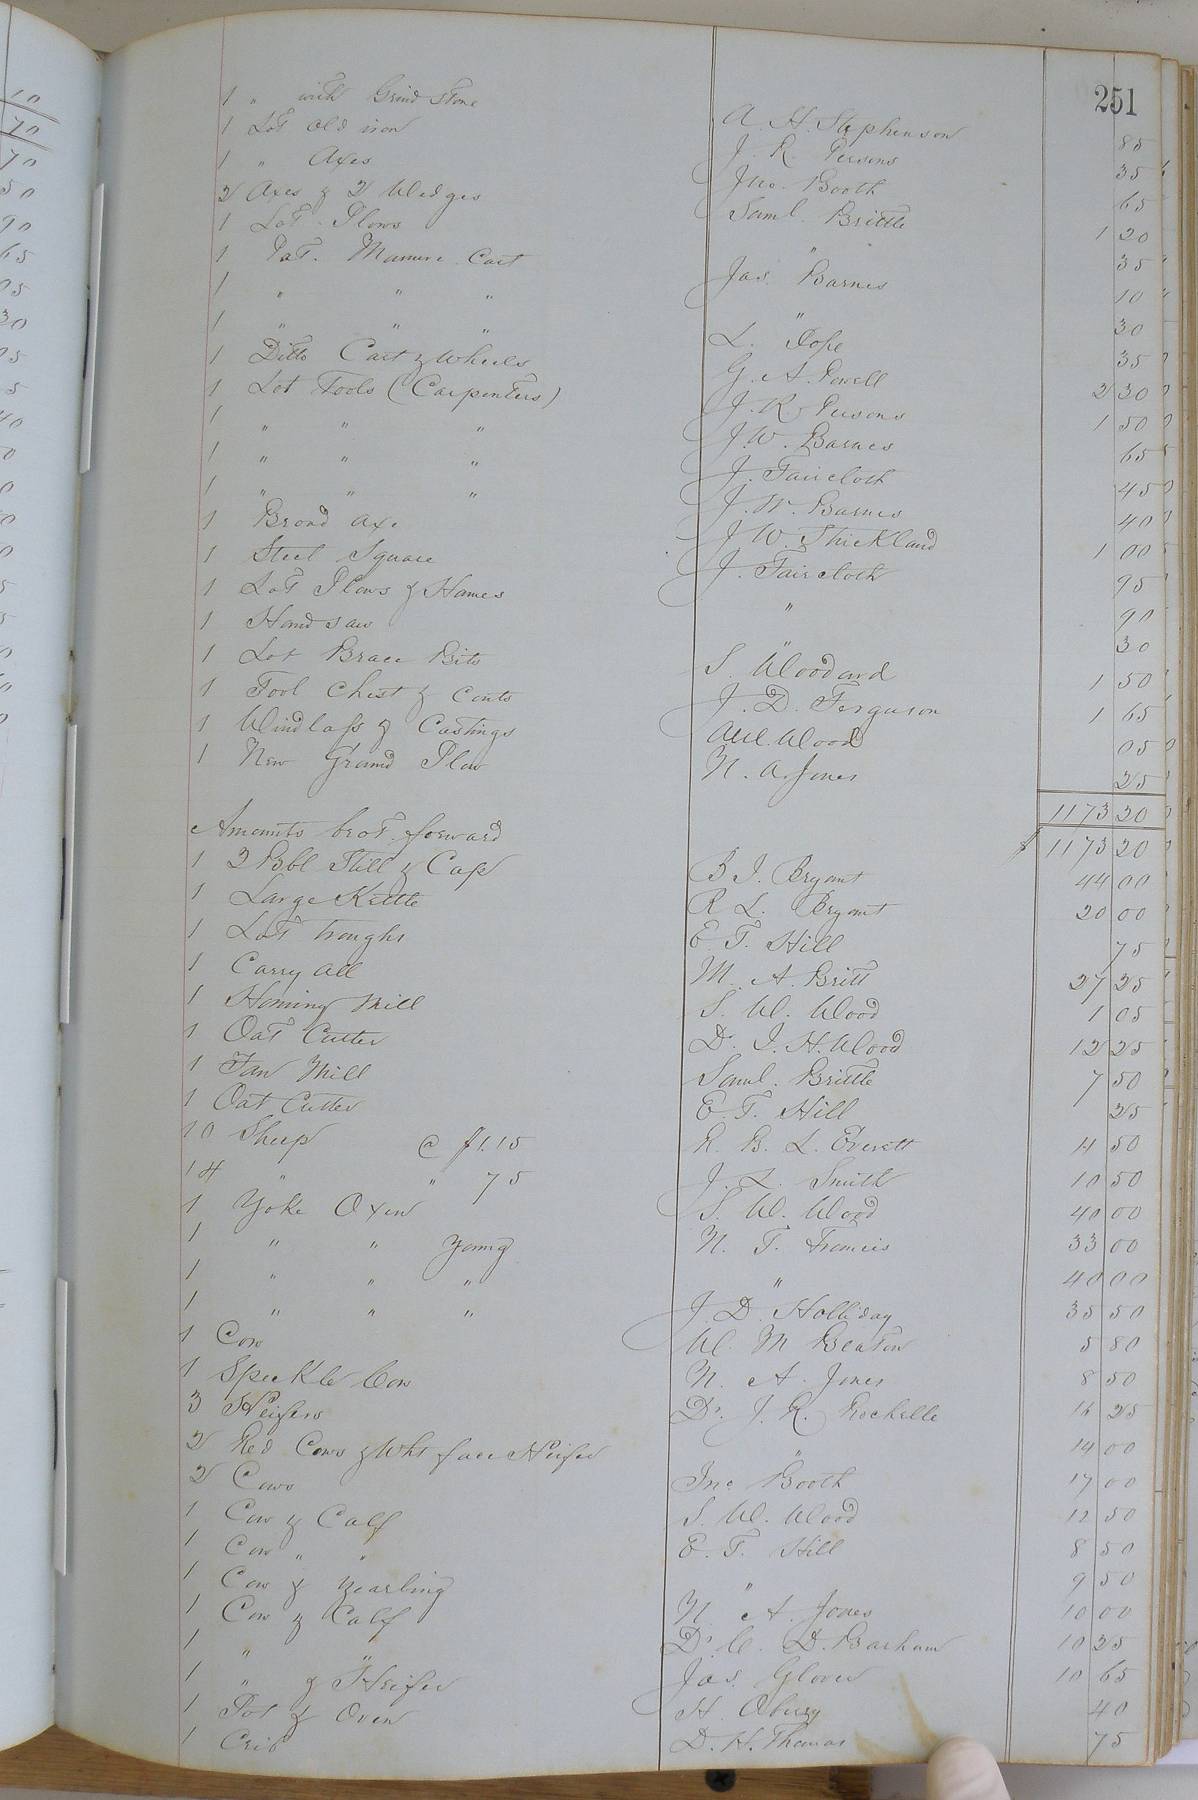 251
1 " with Grind Stone A. H. Stephenson 85
1 Lot old iron J. R. Persons 35
1 " Axes Jno. Booth 65
2 Axes & 2 Wedges Saml. Brittle 1 20
1 Lot Plows " 35
1 Pat. Manure Cart Jas Barnes 10
1 " " " " 30
1 " " " L. Pope 35
1 Ditto Cart & Wheels G. A. Powell 2 30
1 Lot Tools (Carpenters) J. R. Persons 1 50
1 " " " J. W. Barnes 65
1 " " " J. Faircloth 45
1 " " " J. W. Barnes 40
1 Broad Axe J W. Strickland 1 00
1 Steel Square J. Faircloth 95
1 Lot Plows & Hames " 90
1 Hand saw " 30
1 Lot Brace Bits S. Woodard 1 50
1 Tool Chest & Conts J. D. Ferguson 1 65
1 Windlass & Castings Wood 05
1 New Ground Plow N. A. Jones 25
1173 20
Amounts brot. forward $ 1173 20
1 Bbl Still & Cap B J. Bryant 44 00
1 Large Kettle R L. Bryant 20 00
1 Lot troughs E. T. Hill 75
1 Carry all M. A. Britt 27 25
1 Hominy Mill S. W. Wood 1 05
1 Oat Cutter Dr. J. H. Wood 12 25
1 Fan Mill Saml. Brittle 7 50
1 Oat Cutter E. T. Hill 25
10 Sheep @ $1.15 R. B. L. Everett 11 50
14 " " 75 J. L. Smith 10 50
1 Yoke Oxen S. W. Wood 40 00
1 " " Young N. T. Francis 33 00
1 " " " " 40 00
1 " " " J. D. Holliday 35 50
1 Cow W. M Beaton 5 80
1 Speckle Cow N. A. Jones 8 50
3 Heifers Dr. J. R. Rochelle 16 25
2 Red Cows & Wht face Heifer " 14 00
2 Cows Jno Booth 17 00
1 Cow & Calf S. W. Wood 12 50
1 Cow " " E. T. Hill 8 50
1 Cow & Yearling " 9 50
1 Cow & Calf N. A. Jones 10 00
1 " " Dr. C. D. Barham 10 25
1 " & Heifer Jas. Glover 10 65
1 Pot & Oven H 40
1 Crib D. H. Thomas 75